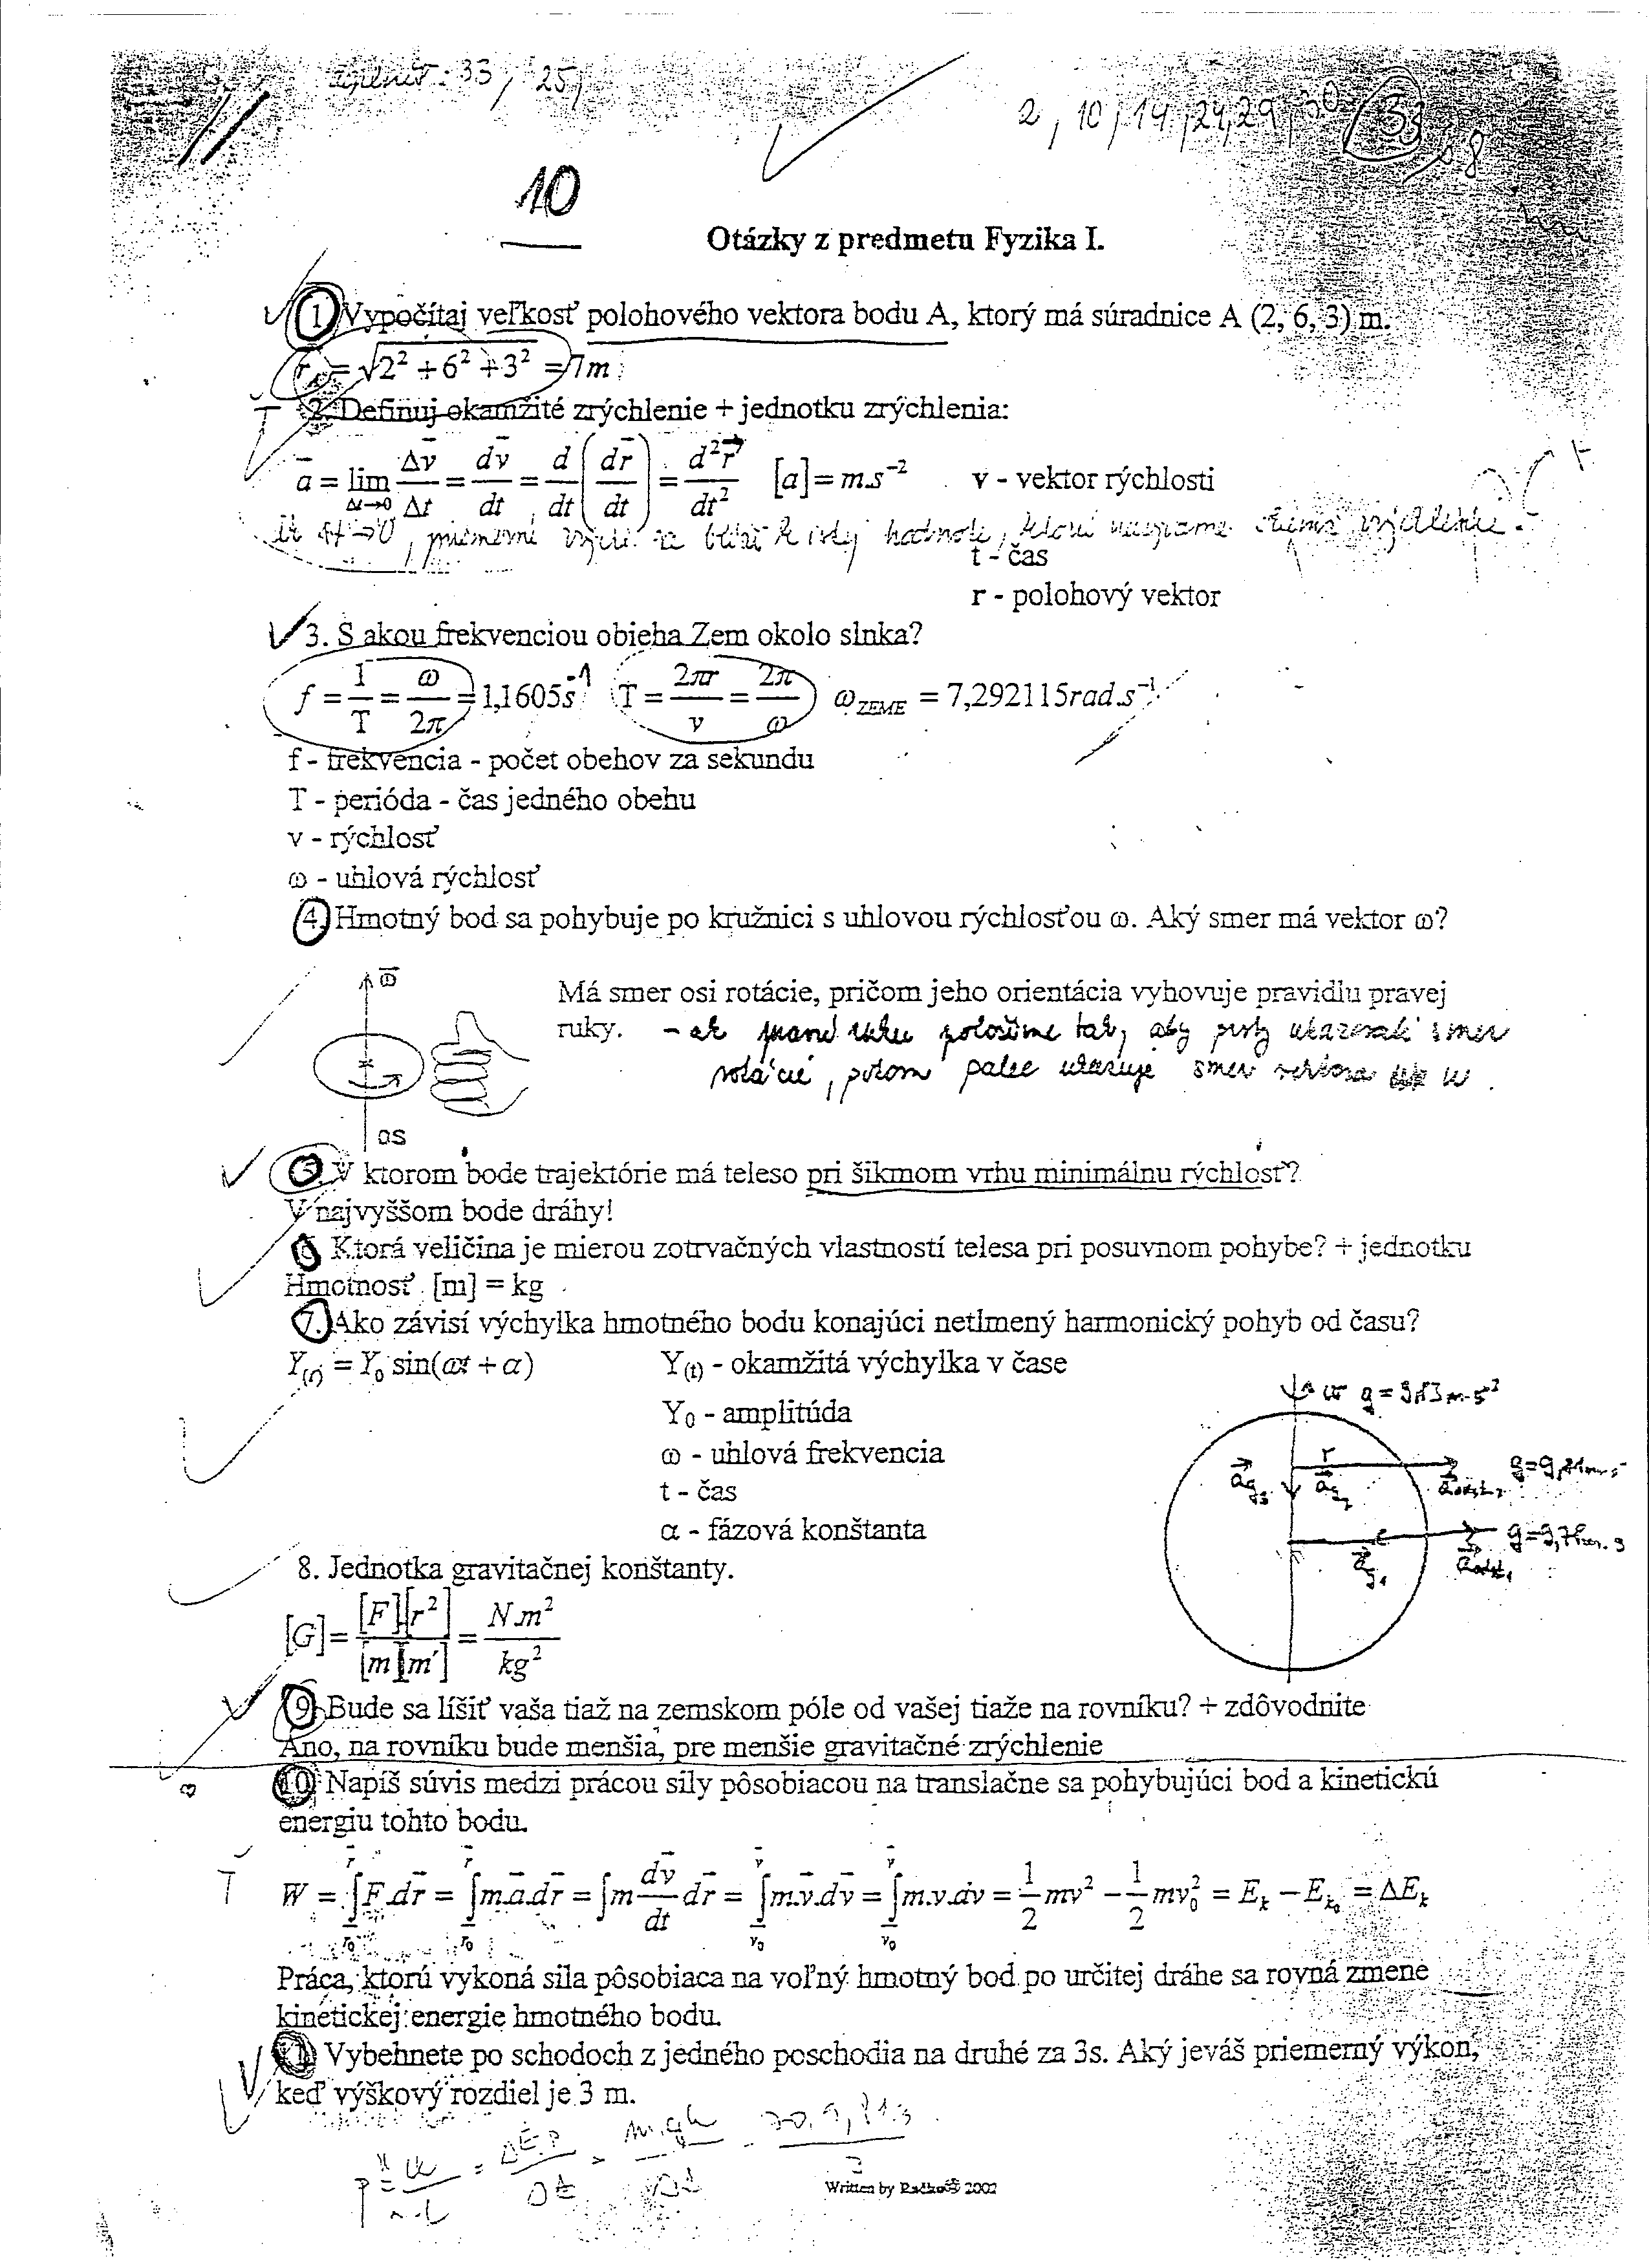 33, 25,
2, 10, 14, 24, 29, 30, 33
8
10
Otázky z predmetu Fyzika I.
1. Vypočítaj veľkosť polohového vektora bodu A, ktorý má súradnice A (2, 6, 3) m.
r = √2² + 6² + 3² = 7m
2. Definuj okamžité zrýchlenie + jednotku zrýchlenia:
a = lim Δt→0 Δv/Δt = dv/dt = d/dt (dr/dt) = d²r/dt² [a] = m.s⁻² v - vektor rýchlosti
hodnote,
t - čas
r - polohový vektor
3. S akou frekvenciou obieha Zem okolo slnka?
f = 1/T = ω/2π = 1,1605s⁻¹ T = 2πr/v = 2π/ω ω_ZEME = 7,292115rad.s⁻¹
f - frekvencia - počet obehov za sekundu
T - perióda - čas jedného obehu
v - rýchlosť
ω - uhlová rýchlosť
4. Hmotný bod sa pohybuje po kružnici s uhlovou rýchlosťou ω. Aký smer má vektor ω?
ω
Má smer osi rotácie, pričom jeho orientácia vyhovuje pravidlu pravej
ruky. - ak pravú ruku položíme tak, aby prsty ukazovali smer
rotácie, potom palec ukazuje smer vektora ω.
os
5. V ktorom bode trajektórie má teleso pri šikmom vrhu minimálnu rýchlosť?
V najvyššom bode dráhy!
6 Ktorá veličina je mierou zotrvačných vlastností telesa pri posuvnom pohybe? + jednotku
Hmotnosť [m] = kg
7. Ako závisí výchylka hmotného bodu konajúci netlmený harmonický pohyb od času?
Y(t) = Y₀ sin(ωt + α) Y(t) - okamžitá výchylka v čase
Y₀ - amplitúda
ω - uhlová frekvencia
t - čas
α - fázová konštanta
8. Jednotka gravitačnej konštanty.
[G] = [F][r²]/[m][m′] = N.m²/kg²
9. Bude sa líšiť vaša tiaž na zemskom póle od vašej tiaže na rovníku? + zdôvodnite
Áno, na rovníku bude menšia, pre menšie gravitačné zrýchlenie
10. Napíš súvis medzi prácou sily pôsobiacou na translačne sa pohybujúci bod a kinetickú
energiu tohto bodu.
W = ∫F.dr = ∫m.a.dr = ∫m dv/dt dr = ∫m.v.dv = ∫m.v.dv = 1/2 mv² − 1/2 mv₀² = Eₖ − Eₖ₀ = ΔEₖ
Práca, ktorú vykoná sila pôsobiaca na voľný hmotný bod po určitej dráhe sa rovná zmene
kinetickej energie hmotného bodu.
11 Vybehnete po schodoch z jedného poschodia na druhé za 3s. Aký je váš priemerný výkon,
keď výškový rozdiel je 3 m.
Written by Raťko® 2002